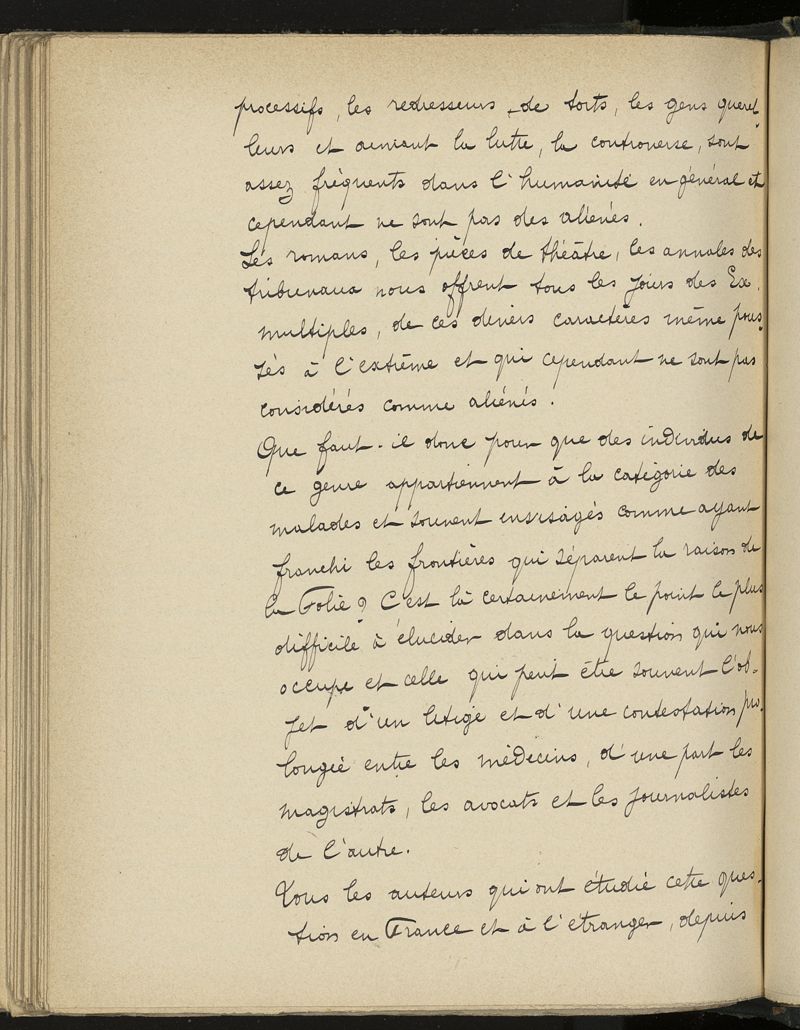 processifs, les redresseurs de torts, les gens querel-
leurs et aimant la lutte, la controverse, sont
assez fréquents dans l'humanité en général et
cependant ne sont pas des aliénés.
Les romans, les pièces de théâtre, les annales des
tribunaux nous offrent tous les jours des Ex.
multiples, de ces divers caractères même pous-
sés à l'extrême et qui cependant ne sont pas
considérés comme aliénés.
Que faut-il donc pour que des individus de
ce genre appartiennent à la catégorie des
malades et souvent envisagés comme ayant
franchi les frontières qui séparent la raison de
la Folie? C'est là certainement le point le plus
difficile à élucider dans la question qui nous
occupe et celle qui peut être souvent l'ob-
jet d'un litige et d'une contestation pro-
longée entre les médecins, d'une part les
magistrats, les avocats et les journalistes
de l'autre.
Tous les auteurs qui ont étudié cette ques-
tion en France et à l'étranger, depuis